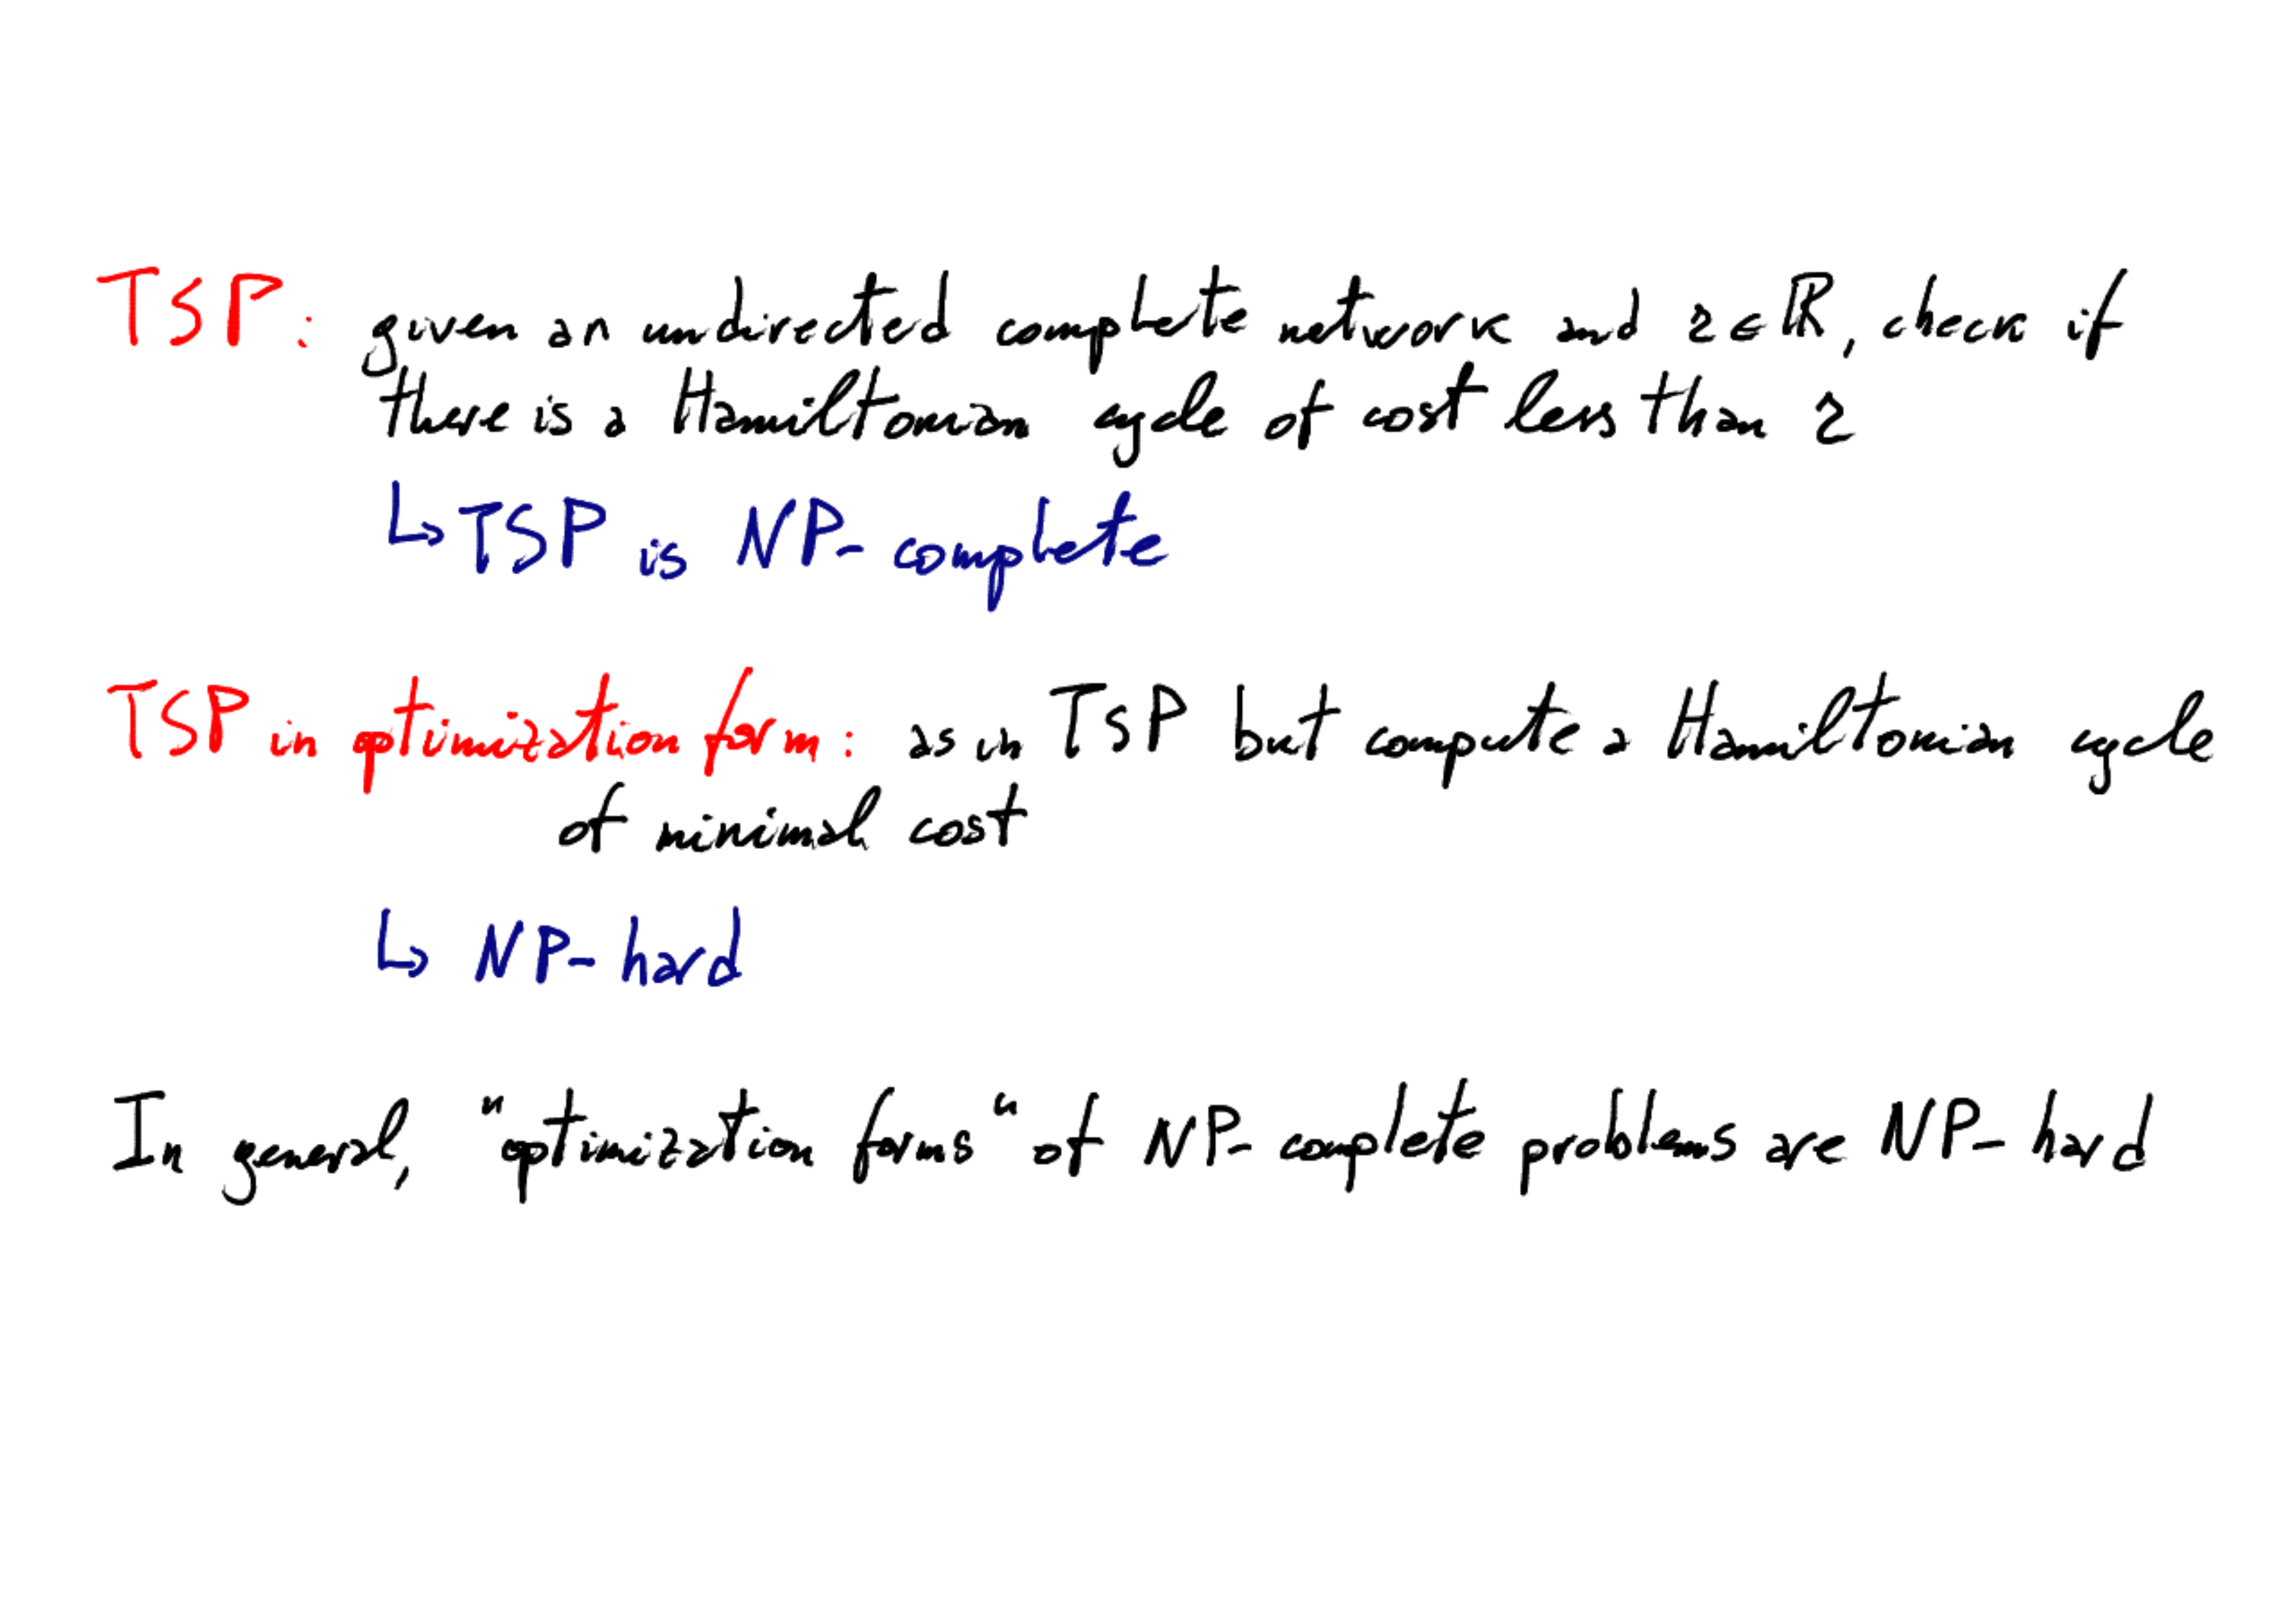 TSP: given an undirected complete network and r ∈ ℝ, check if
there is a Hamiltonian cycle of cost less than r
↳ TSP is NP-complete
TSP in optimization form: as in TSP but compute a Hamiltonian cycle
of minimal cost
↳ NP-hard
In general, "optimization forms" of NP-complete problems are NP-hard